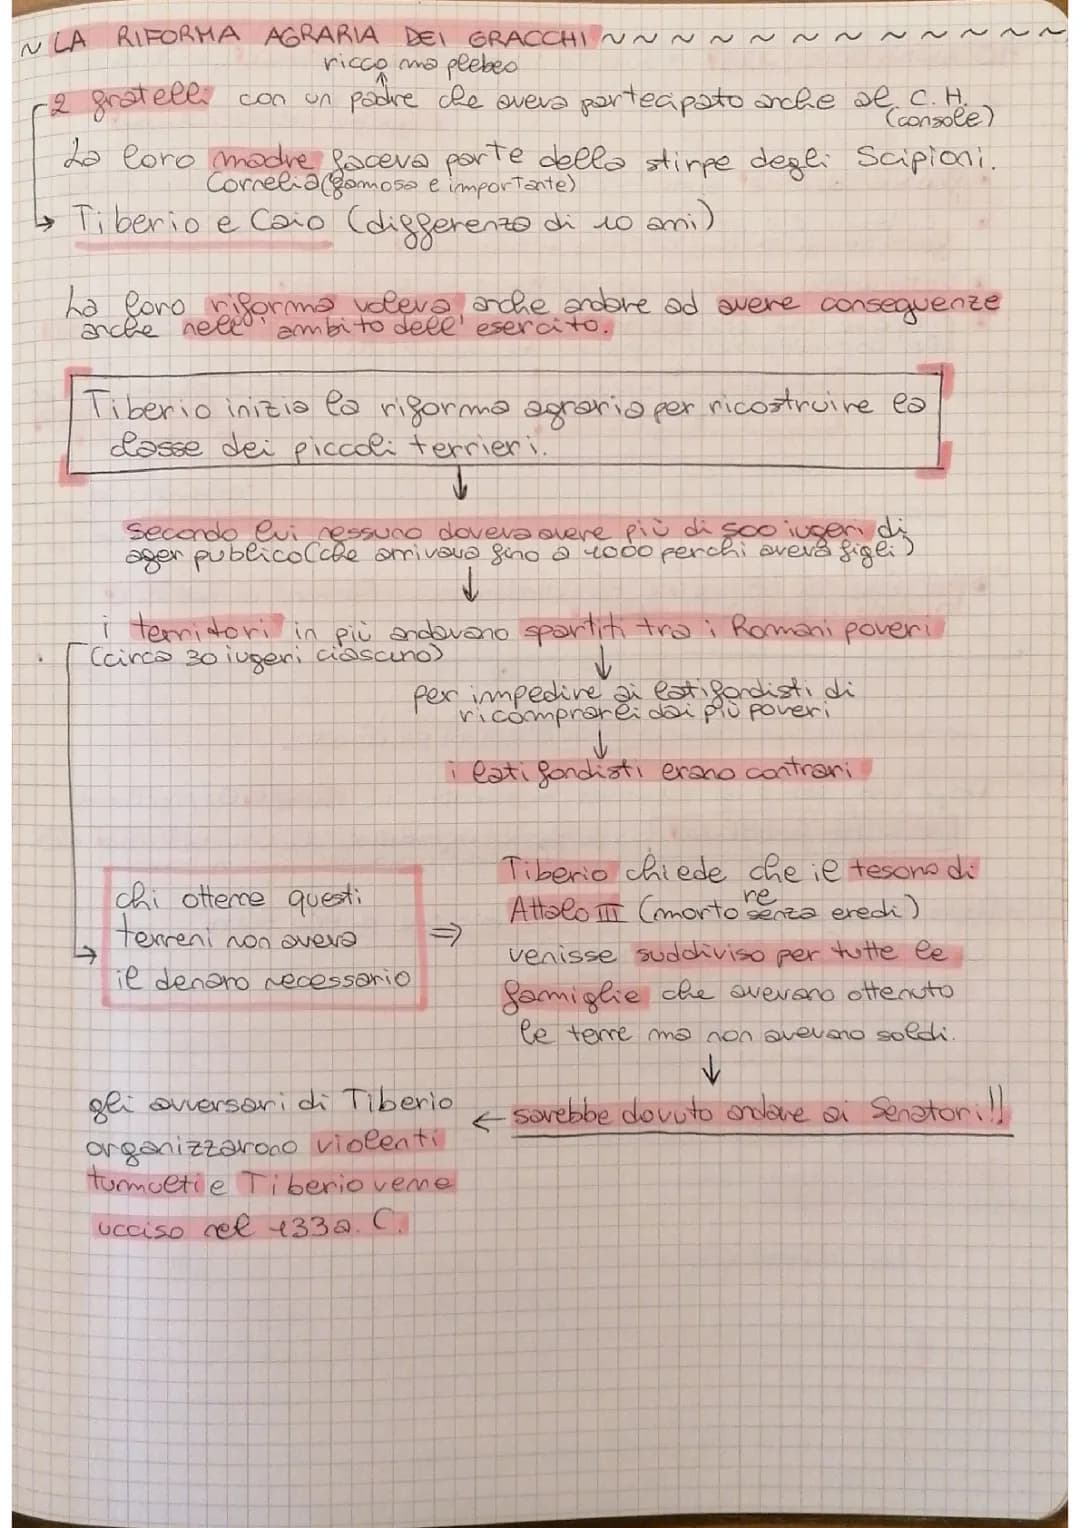 ~ LA RIFORMA AGRARIA DEI GRACCHI ~ ~ ~ ~ ~ ~ ~ ~ ~ ~ ~ ~ ~
ricco ma plebeo
2 fratelli con un padre che aveva partecipato anche al C.H.
(console)
La loro madre faceva parte della stirpe degli Scipioni.
Cornelia (famosa e importante)
Tiberio e Caio (differenza di 10 anni)
La loro riforma voleva anche andare ad avere conseguenze
anche nell'ambito dell'esercito.
Tiberio inizia la riforma agraria per ricostruire la
classe dei piccoli terrieri.
Secondo lui nessuno doveva avere più di 500 iugeri di
ager publico (che arrivava fino a 1000 per chi aveva figli)
i territori in più andavano spartiti tra i Romani poveri
(circa 30 iugeri ciascuno)
per impedire ai latifondisti di
ricomprarli dai più poveri
i latifondisti erano contrari
chi ottenne questi
terreni non aveva
il denaro necessario
⇒
Tiberio chiede che il tesoro di
re
Attalo III (morto senza eredi)
venisse suddiviso per tutte le
famiglie che avevano ottenuto
le terre ma non avevano soldi.
sarebbe dovuto andare ai Senatori!!
gli avversari di Tiberio
organizzarono violenti
tumulti e Tiberio venne
ucciso nel 133 a.C.